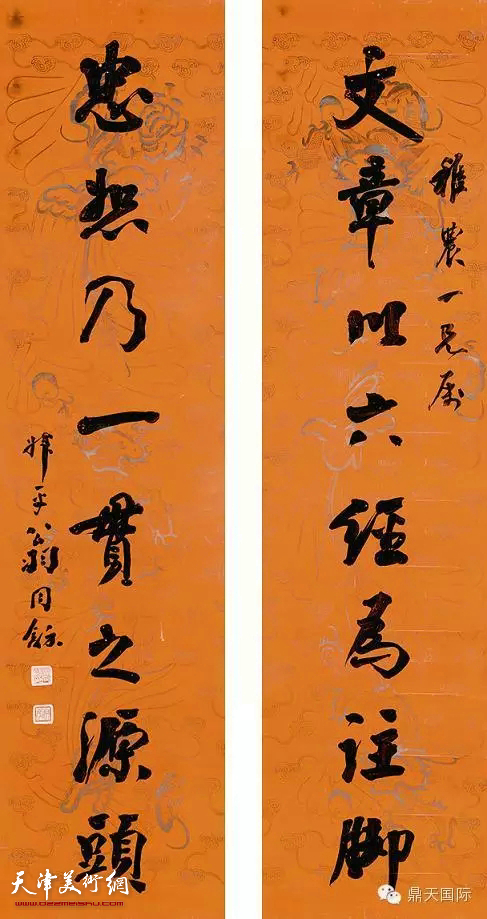 文章以六經為註脚
稚農一兄属
忠恕乃一貫之源頭
叔平翁同龢
天津美術網
鼎天国际